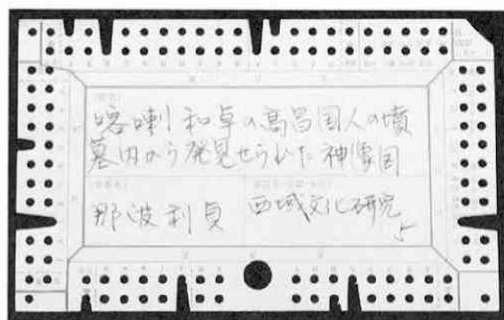 喀喇和卓の高昌国人の墳
墓内から発見せられた神像図
那波利貞
西域文化研究
5